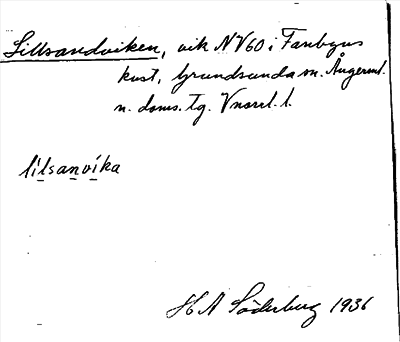 Lillsandviken, vik N V60 i Fanbyns
kust, Grundsunda sn. Ångerml.
n. doms. tg. Vnorrl. l.
lilsanvika
H A Söderberg 1936